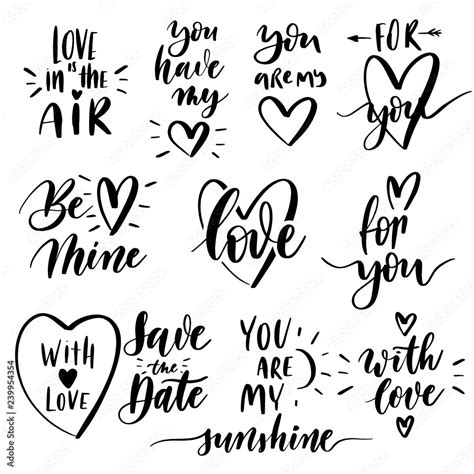 LOVE
in is the
AIR
you
have
my
you
are my
FOR
you
Be
mine
love
for
you
WITH
LOVE
Save
the
Date
YOU
ARE
MY
sunshine
with
love
Adobe Stock | #239954354